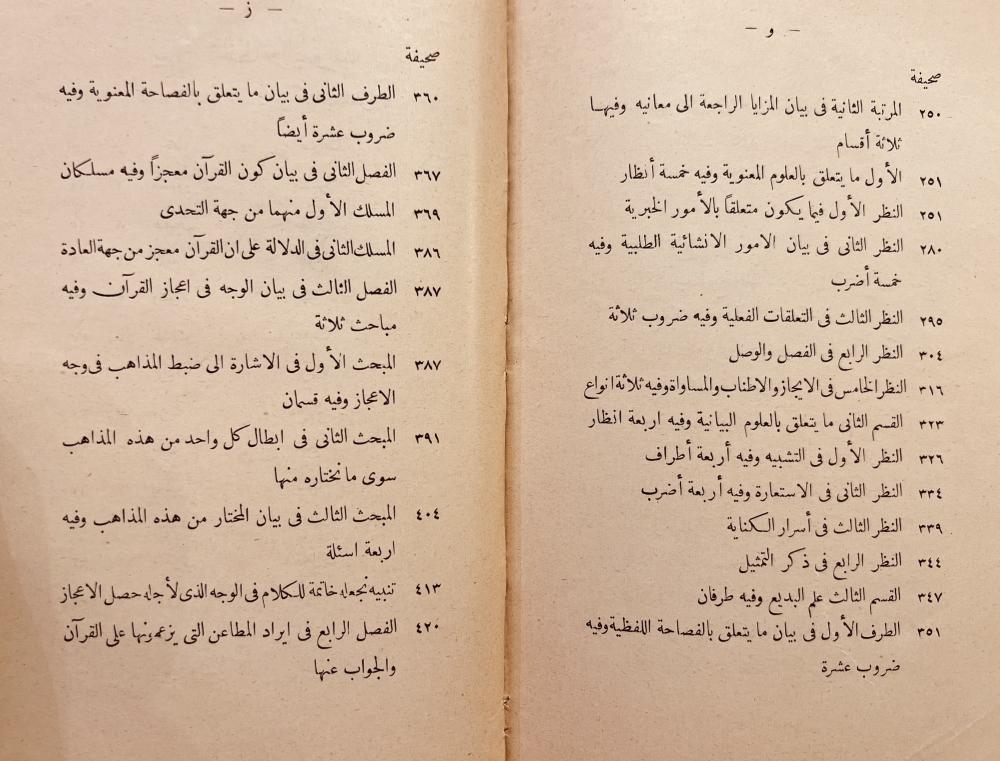 — و —
صحيفة
٢٥٠ المرتبة الثانية فى بيان المزايا الراجعة الى معانيه وفيهـا
ثلاثة أقسام
٢٥١ الأول ما يتعلق بالعلوم المعنوية وفيه خمسة أنظار
٢٥١ النظر الأول فيما يكون متعلقاً بالأمور الخبرية
٢٨٠ النظر الثانى فى بيان الامور الانشائية الطلبية وفيه
خمسة أضرب
٢٩٥ النظر الثالث فى التعلقات الفعلية وفيه ضروب ثلاثة
٣٠٤ النظر الرابع فى الفصل والوصل
٣١٦ النظر الخامس فى الايجاز والاطناب والمساواة وفيه ثلاثة انواع
٣٢٣ القسم الثانى ما يتعلق بالعلوم البيانية وفيه اربعة انظار
٣٢٦ النظر الأول فى التشبيه وفيه أربعة أطراف
٣٣٤ النظر الثانى فى الاستعارة وفيه أربعة أضرب
٣٣٩ النظر الثالث فى أسرار الـكناية
٣٤٤ النظر الرابع فى ذكر التمثيل
٣٤٧ القسم الثالث علم البديع وفيه طرفان
٣٥١ الطرف الأول فى بيان ما يتعلق بالفصاحة اللفظية وفيه
ضروب عشرة
— ز —
صحيفة
٣٦٠ الطرف الثانى فى بيان ما يتعلق بالفصاحة المعنوية وفيه
ضروب عشرة أيضاً
٣٦٧ الفصل الثانى فى بيان كون القرآن معجزاً وفيه مسلـكان
٣٦٩ المسلك الأول منهما من جهة التحدى
٣٨٦ المسلك الثانى فى الدلالة على ان القرآن معجز من جهة العادة
٣٨٧ الفصل الثالث فى بيان الوجه فى اعجاز القرآن وفيه
مباحث ثلاثة
٣٨٧ المبحث الأول فى الاشارة الى ضبط المذاهب فى وجه
الاعجاز وفيه قسمان
٣٩١ المبحث الثانى فى ابطال كل واحد من هذه المذاهب
سوى ما نختاره منها
٤٠٤ المبحث الثالث فى بيان المختار من هذه المذاهب وفيه
اربعة اسئلة
٤١٣ تنبيه نجعله خاتمة للـكلام فى الوجه الذى لأجله حصل الاعجاز
٤٢٠ الفصل الرابع فى ايراد المطاعن التى يزعمونها على القرآن
والجواب عنها